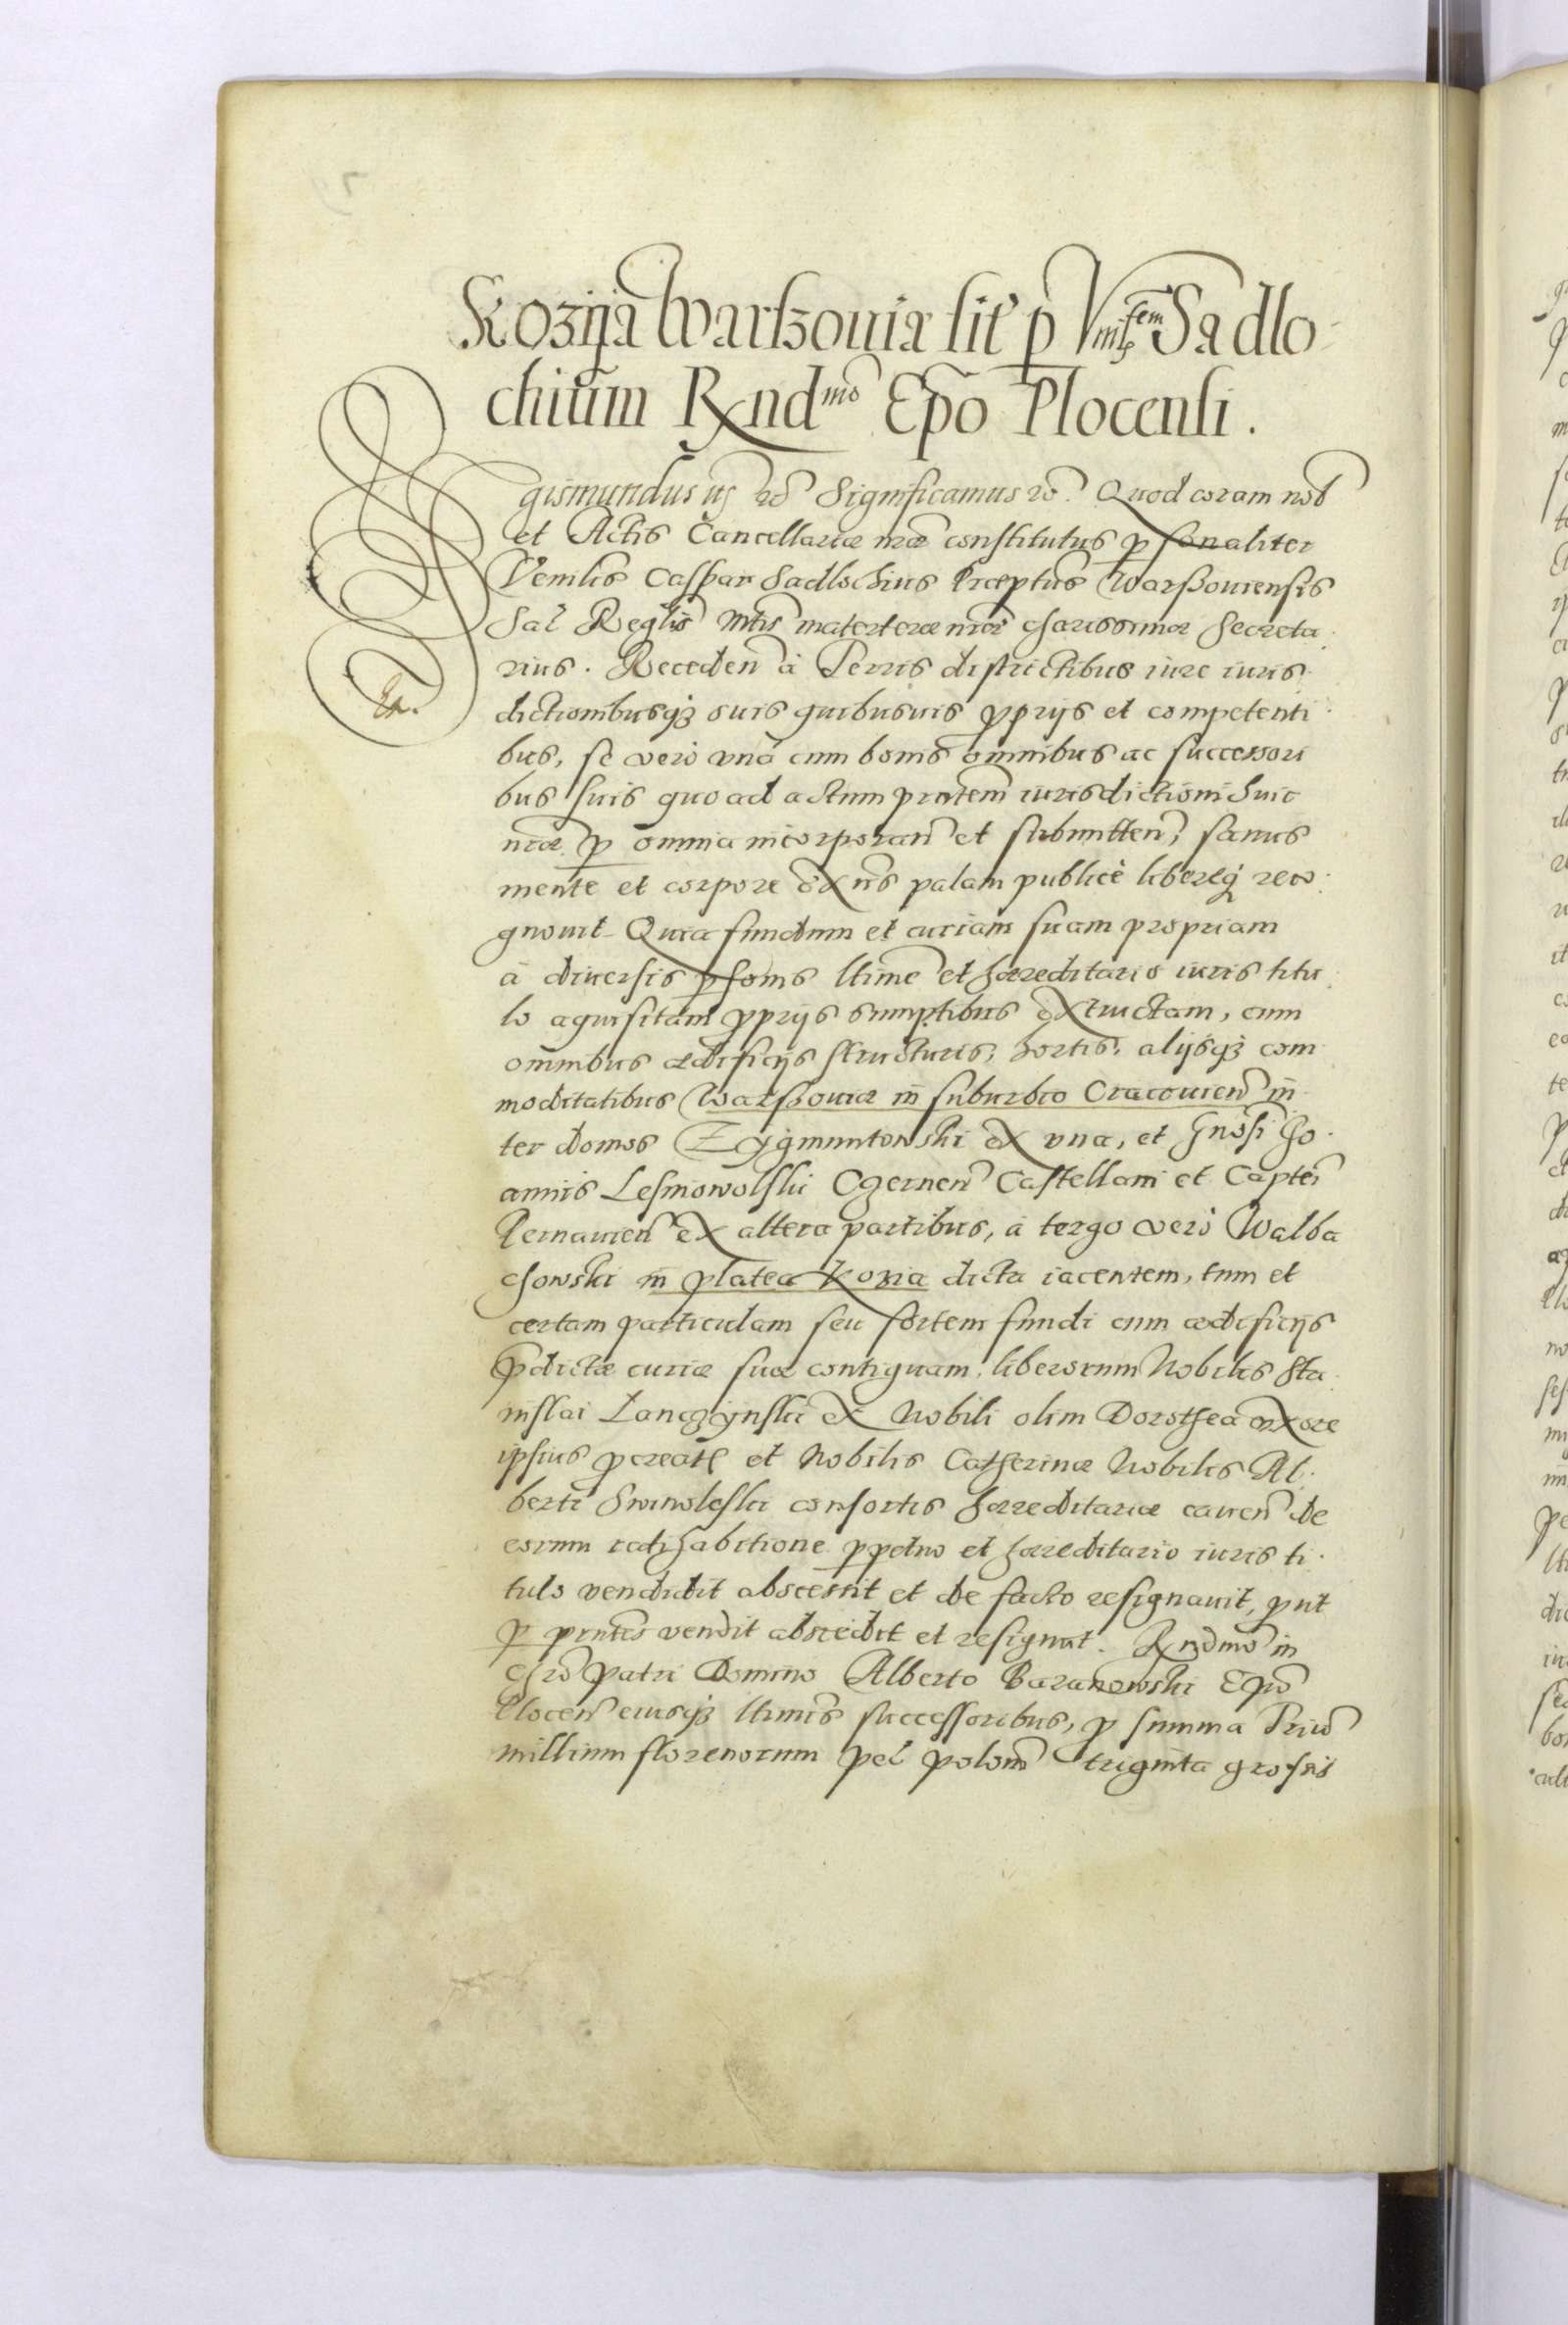 Kozija Warszouiæ sit p Vmlem Sadlo
chium Rxndmo Epo Plocensi.
Sigismundus iij etc Significamus etc. Quod coram nob
et Actis Cancellariæ nræ constitutus psonaliter
Venlis Caspar Sadlochius Præptus Warssouiensis
Sac Reglis Mtis materteræ nræ charissimæ Secreta
rius. Receden à Terris districtibus iure iuris
dictionibusq suis quibusuis pprijs et competenti
bus, se vero vna cum bonis omnibus ac successori
bus suis quo ad actum prntem iurisdictioni huic
nræ p omnia incorporan et submitten, sanus
mente et corpore exns palam publicè libereq reco
gnouit Quia fundum et curiam suam propriam
à diuersis psonis ltime et hæreditario iuris titu
lo aquisitam pprijs sumptibus extructam, cum
omnibus ædificijs structuris, hortis, alijsq com
moditatibus Warssouiæ in suburbio Cracouien in
ter domos Zygmuntowski ex vna, et Gnosi Jo
annis Lesniowolski Czernen Castellani et Captei
Pernauien ex altera partibus, à tergo vero Walba
chowski in platea Kozia dicta iacentem, tum et
certam particulam seu sortem fundi cum ædificijs
pdictæ curiæ suæ contiguam, liberorum Nobilis Sta
nislai Lanczÿnski ex Nobili olim Dorothea vxore
ipsius pcreat et Nobilis Catherinæ Nobilis Al
berti Swinoleski consortis hæreditariæ cauen de
eorum ratihabitione ppetuo et hæreditario iuris ti
tulo vendidit abscessit et de facto resignauit, put
p prntes vendit abscedit et resignat. Rxndmo in
Chro patri Domino Alberto Baranowski Epo
Plocen eiusq ltimis successoribus, p summa Trium
millium florenorum pel polon triginta grossis